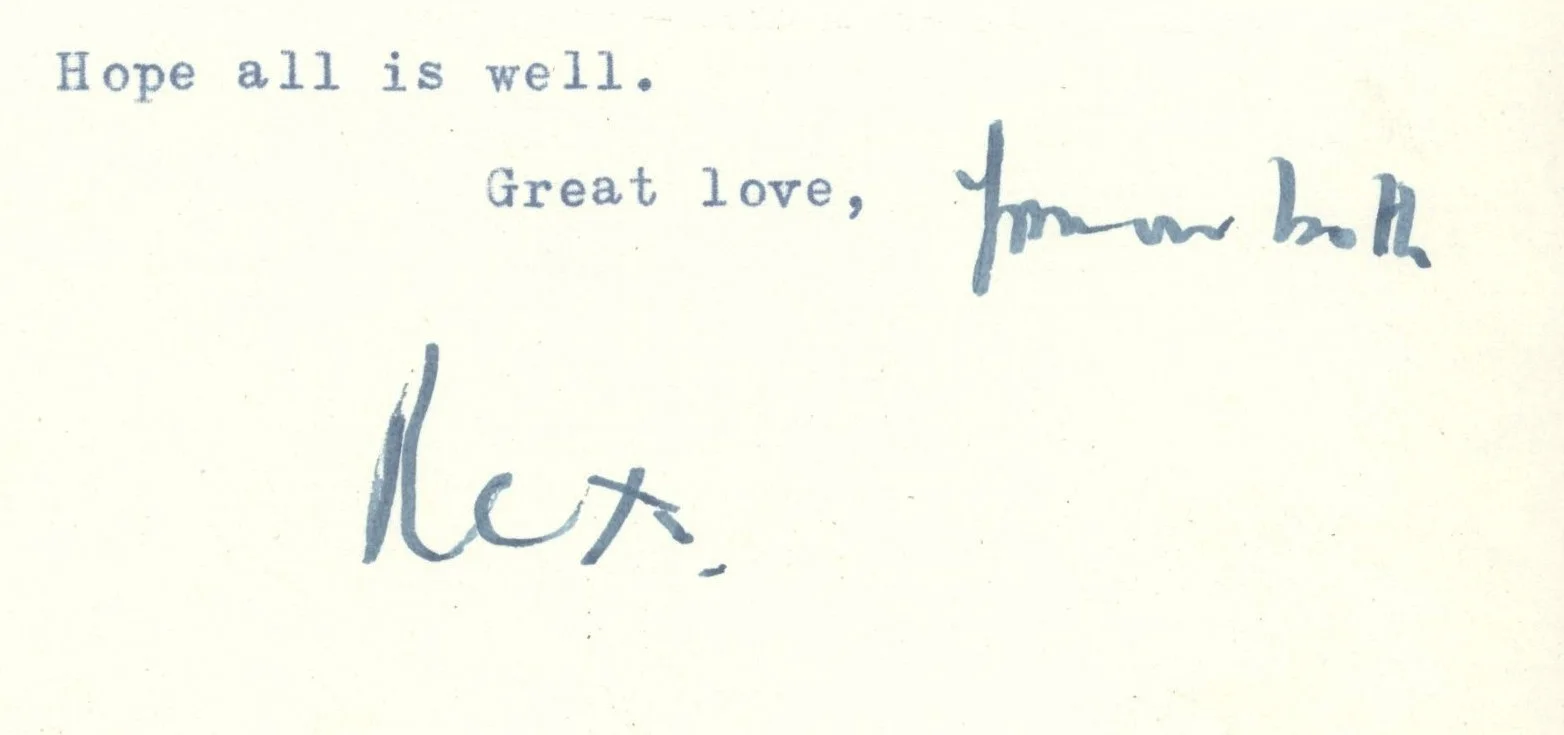 Hope all is well.
Great love, from us both
Rex.